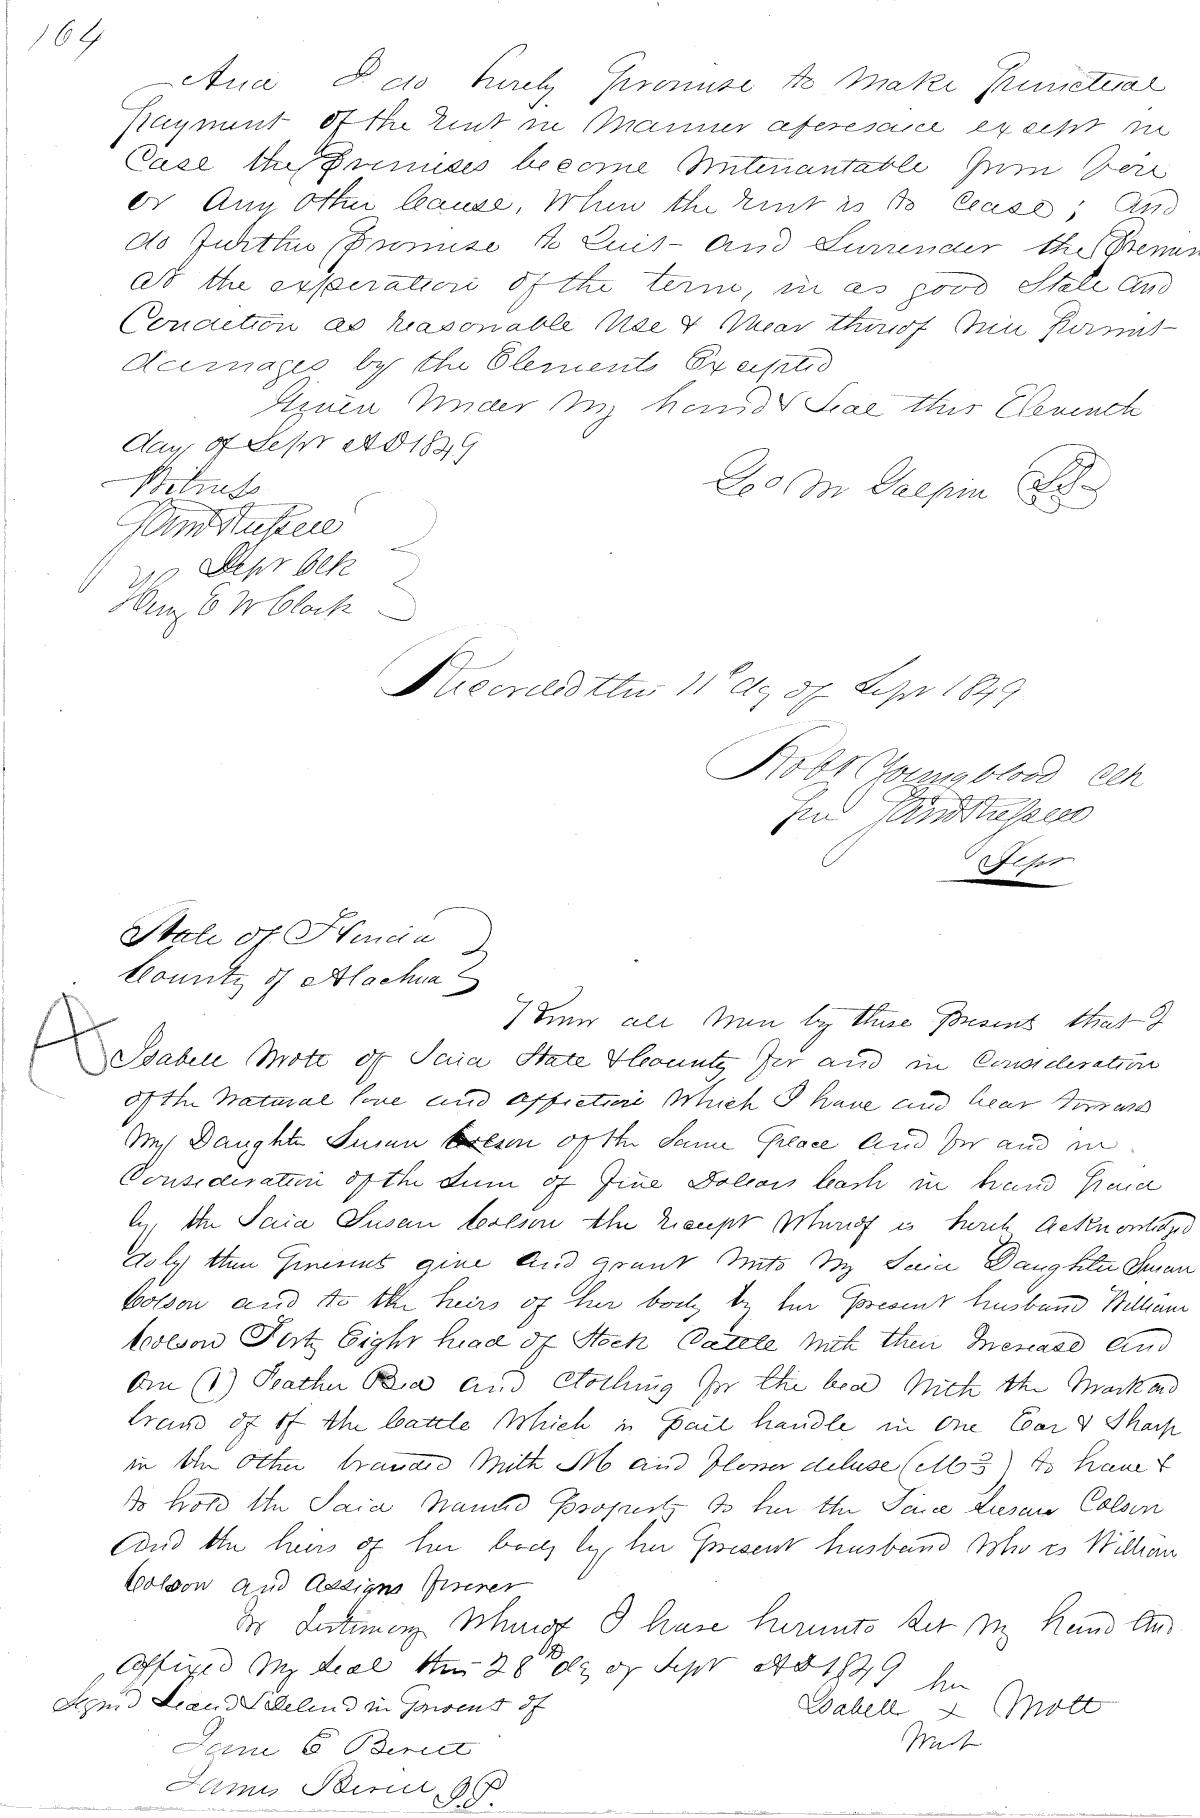 164
And I do hereby Promise to Make Punctual
Payment of the Rent in Manner aforesaid except in
Case the Premises become Untenantable from Fire
or Any Other Cause, When the Rent is to Cease; And
do further Promise to Quit and Surrender the Premis
at the experation of the term, in as good State and
Condition as reasonable Use & Wear thereof Will Permit
damages by the Elements Excepted
Given Under My hand & Seal this Eleventh
day of Sept AD 1849
Geo M Galpin
Witness
Depr Clk
Heny E W Clark
Recorded this 11th dy of Sept 1849
Robt Youngblood Clk
Per
Depr
State of Florida
County of Alachua
Know all Men by these Present that I
Isabell Mott of Said State & County for and in Consideration
of the Natural love and affection Which I have and bear towards
My Daughter Susan Colson of the Same Place And for and in
Consideration of the Sum of Five Dollars Cash in hand Paid
by the Said Susan Colson the Receipt Whereof is hereby Acknowledged
do by these Presents give and grant unto My Said Daughter Susan
Colson and to the heirs of her body by her Present husband William
Colson Forty Eight head of Stock Cattle With their Increase and
One (1) Feather Bed and Clothing for the bed With the Mark and
brand of of the Cattle Which is Pail handle in One Ear & Sharp
in the Other branded With M and flower deluse (M3) to have &
to hold the Said Named Property to her the Said Susan Colson
And the heirs of her body by her Present husband Who is William
Colson and Assigns forever
In Testimony Whereof I have hereunto Set My hand And
Affixed My Seal this 28th dy of Sept AD 1849
Signd Seald & Delend in Presents of
her
Isabell x Mott
Mark
Jane E
James J.P.